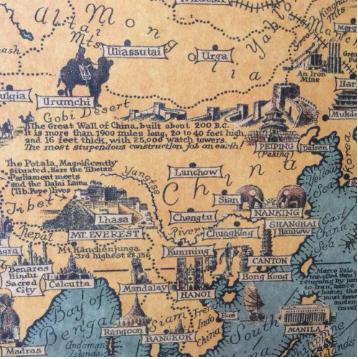 Altai
Mts
Mongolia
Uliassutai
Urga
Yablonoi
An Iron
Mine
Kulgia
Urumchi
Gobi Desert
The Great Wall of China, built about 200 B.C.
It is more than 1900 miles long, 20 to 40 feet high,
and 16 feet thick, with 25,000 watch towers.
The most stupendous construction job on earth!
PEIPING
(Peking)
Dairen
Mukden
The Potala, Magnificently
situated. Here the Tibetan
Parliament meets
and the Dalai Lama
(Tib. Pope) lives
Tibet
Lanchow
China
Yangtse
Sian
NANKING
SHANGHAI
Hankow
Lhasa
Chengtu
MT. EVEREST
River
Chungking
Mt. Kanchenjunga
3rd highest 28,156
Kunming
CANTON
Hong Kong
Benares
Hindu
Sacred
City
Calcutta
Mandalay
HANOI
Bay of
Bengal
Rangoon
Siam
French
Indo
China
BANGKOK
South
MANILA
Madras
Andaman
Islands